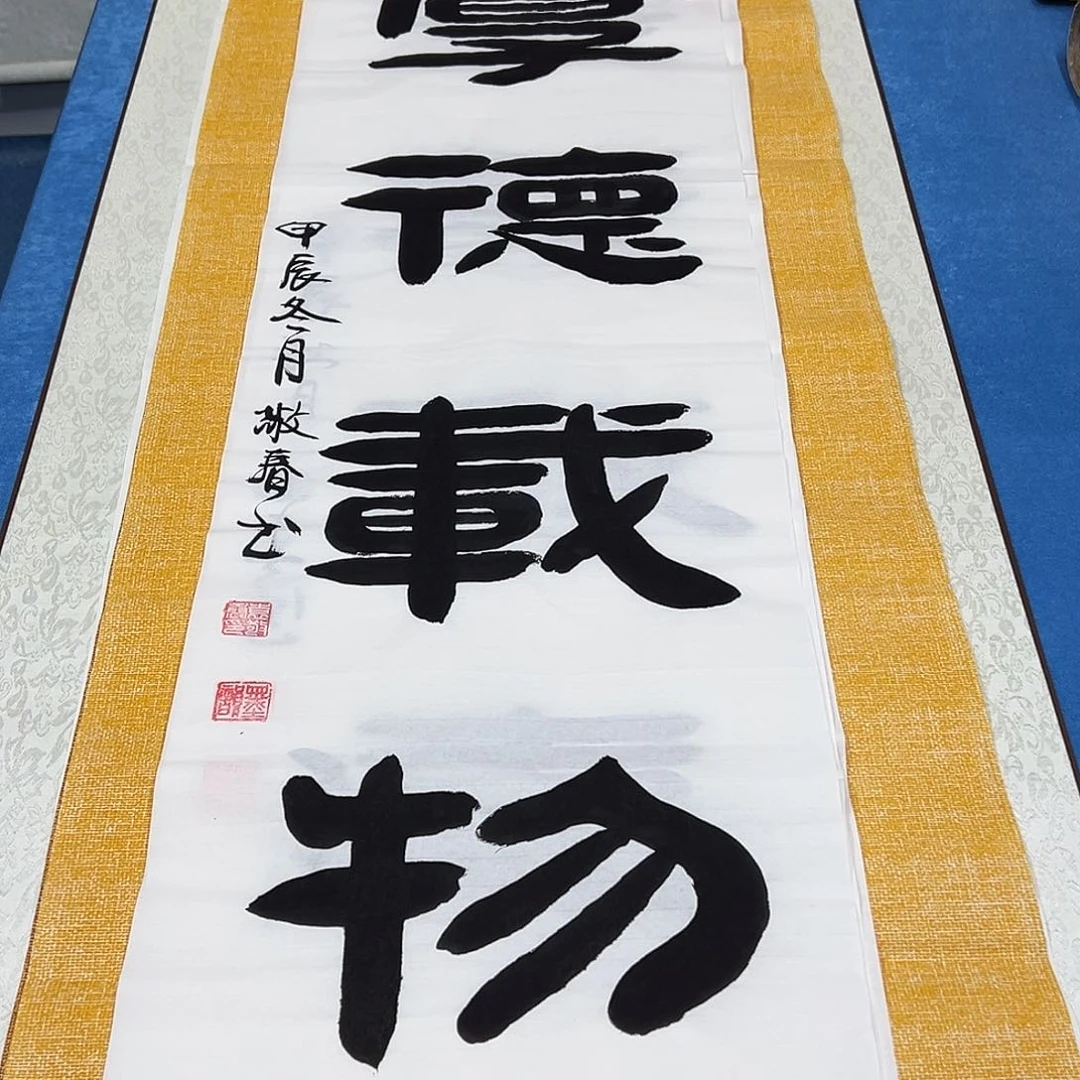 厚德載物
甲辰冬月敬春书